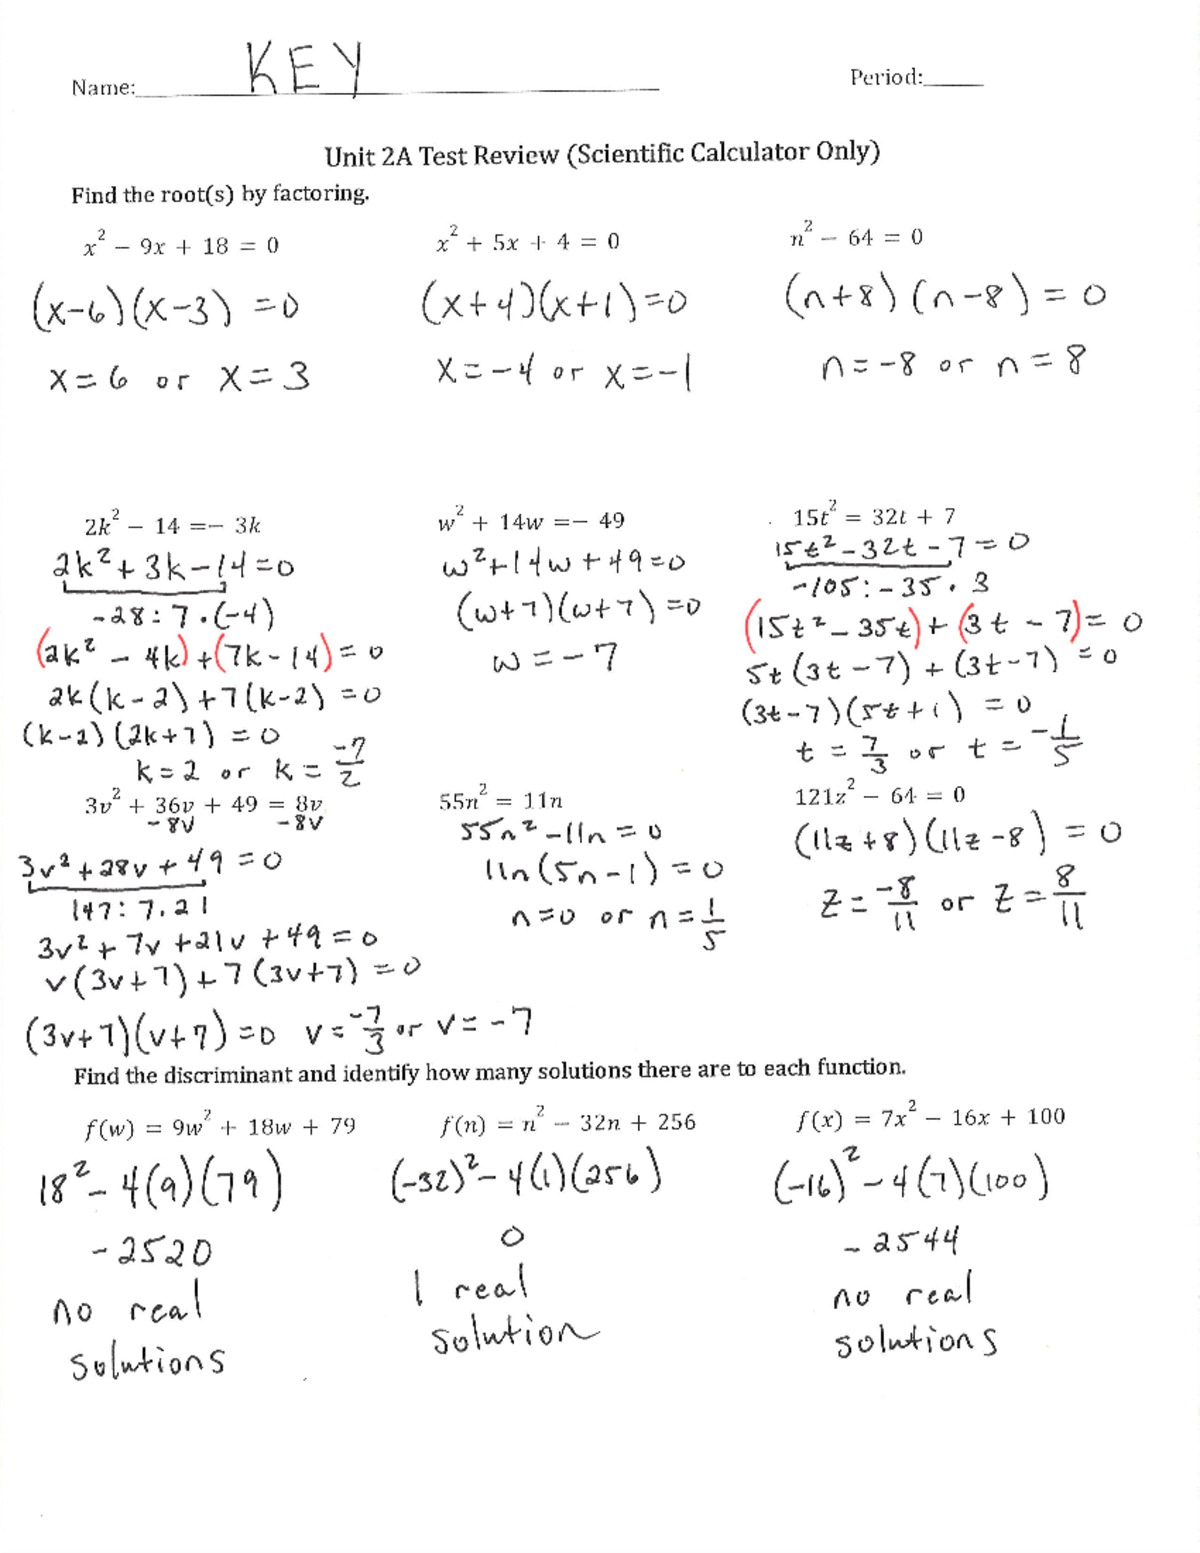 Name: KEY Period:
Unit 2A Test Review (Scientific Calculator Only)
Find the root(s) by factoring.
x² − 9x + 18 = 0
(x-6)(x-3) = 0
x = 6 or x = 3
x² + 5x + 4 = 0
(x+4)(x+1)=0
x=-4 or x=-1
n² − 64 = 0
(n+8)(n-8) = 0
n=-8 or n=8
2k² − 14 =− 3k
2k²+3k-14=0
-28: 7·(-4)
(2k² - 4k)+(7k-14)=0
2k(k-2)+7(k-2)=0
(k-2)(2k+7)=0
k=2 or k=-7/2
w² + 14w =− 49
w²+14w+49=0
(w+7)(w+7)=0
w=-7
. 15t² = 32t + 7
15t²-32t-7=0
-105: -35·3
(15t²-35t)+(3t-7)=0
5t(3t-7)+(3t-7)=0
(3t-7)(5t+1)=0
t=7/3 or t=-1/5
3v² + 36v + 49 = 8v
-8v -8v
3v²+28v+49=0
147: 7·21
3v²+7v+21v+49=0
v(3v+7)+7(3v+7)=0
(3v+7)(v+7)=0 v=-7/3 or v=-7
55n² = 11n
55n²-11n=0
11n(5n-1)=0
n=0 or n=1/5
121z² − 64 = 0
(11z+8)(11z-8)=0
z=-8/11 or z=8/11
Find the discriminant and identify how many solutions there are to each function.
f(w) = 9w² + 18w + 79
18²-4(9)(79)
-2520
no real
solutions
f(n) = n² − 32n + 256
(-32)²-4(1)(256)
0
1 real
solution
f(x) = 7x² − 16x + 100
(-16)²-4(7)(100)
-2544
no real
solutions